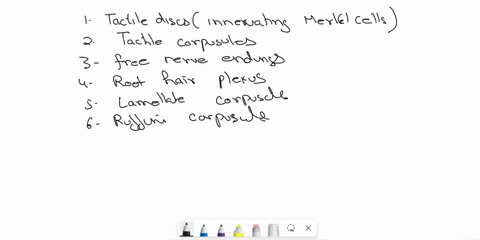 1. Tactile discs (innervating Merkel cells)
2. Tactile corpusules
3- free nerve endings
4- Root hair plexus
5- Lamellate corpuscle
6- Ruffini corpusule